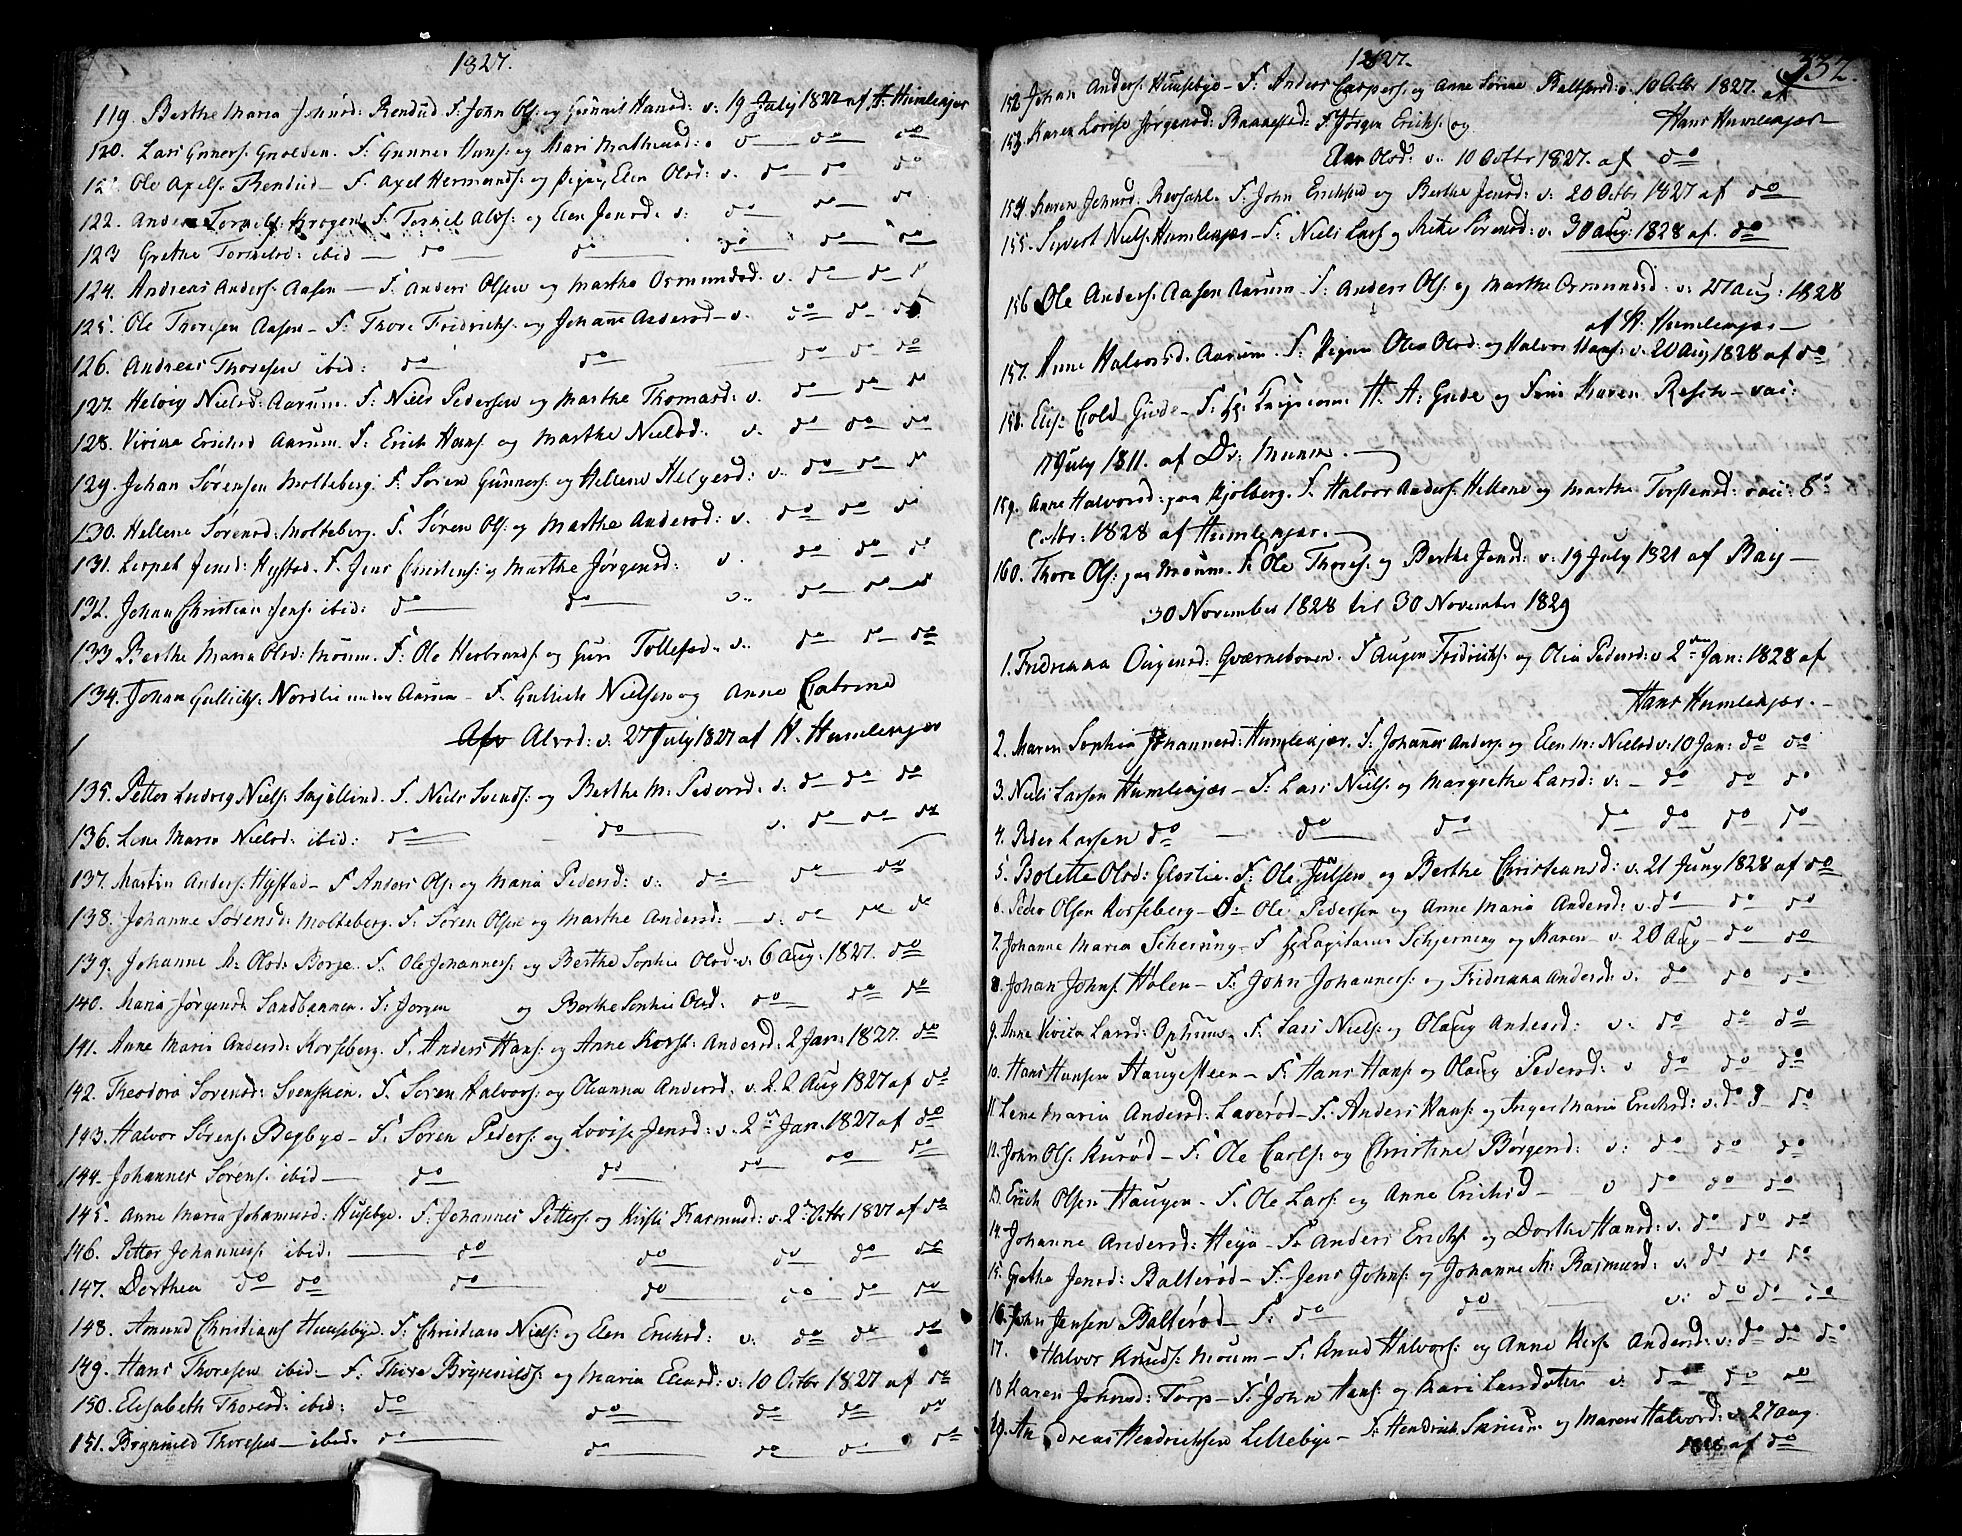 1827.
119. Berthe Maria Johnsd: Rendud F: John Ols: og Gunnil Hansd: v: 19 July 1827 af H. Humlekjær
120. Lars Gunners: F: Gunner Hans: og Mari Mathisd: do do
121. Ole Axels: Rendud — F: Axel Hermands: og Pigen Elen Olsd: v. do do do
122. Anders Torkils: Krogen F: Torkil Alvs: og Elen Jensd: v: do do do
123 Grethe Torkilsd: ibid — do do do do do
124. Andreas Anders: Aasen — F: Anders Olsen og Marthe Osmundsd: v. do do do
125. Ole Thoresen Aasen — F: Thore Fridrichs: og Johane Andersd — v. do do do
126. Andreas Thoresen ibid: do do do do do
127. Helvig Nielsd: Aarum. F: Niels Pedersen og Marthe Thomasd: v. do do do
128. Virina Erichsd Aarum. F: Erich Hans: og Marthe Nielsd. v. do do do
129. Johan Sörensen Molteberg. F: Sören Gunners: og Hellene Helgesd: v. do do do
130. Hellene Sörensd: Molteberg. F: Sören Ols: og Marthe Andersd: v. do do do
131. Lispet Jensd: Hystad. F. Jens Christens: og Marthe Jörgensd: v. do do do
132. Johan Christian Jens: ibid: do do v. do do do
133 Berthe Maria Olsd: Moum. F: Ole Herbrands: og Guri Tollefsd. v. do do do
134. Johan Gulichs: Nordlie under Aarum — F: Gulich Nielsen og Anne Catrine
Alvsd: v: 27 July 1827 af H. Humlekjær
135. Petter Ludvig Niels: Skjellind. F: Niels Svends: og Berthe M: Pedersd: v: do do do
136. Lene Maria Nielsd: ibid: do do v. do do do
137. Martin Anders: Hystad — F: Anders Ols: og Maria Pedersd: v: do do do
138. Johanne Sörensd: Molteberg. F: Sören Olsen og Marthe Andersd: — v. do do do
139. Johanne M: Olsd: Borge. F. Ole Johanness: og Berthe Sophie Olsd: v: 6 Aug: 1827. do
140. Maria Jörgensd: Sandbakken. F: Jörgen og Berthe Sophie Olsd: do do do
141. Anne Maria Andersd: Korseberg. F. Anders Hans: og Anne Kirst: Andersd: 2 Jan: 1827. do
142. Theodora Sörensd: Svensken. F. Sören Halvors: og Oleanna Andersd: v. 22 Aug 1827 af do
143. Halvor Sörens: Begbye — F. Sören Peders: og Lovise Jensd: v. 2den Jan: 1827 af do
144. Johannes Sörens: ibid — do do do do do
145. Anne Maria Johannesd: Husebye. F: Johannes Petters: og Kirsti Rasmusd: v. 2den Octbr 1827 af do
146. Petter Johanness: ibid: do do do do do
147. Dorthea do do do do do do do
148. Amund Christians: Huusebye. F: Christian Niels: og Elen Erichsd: v: do do do
149. Hans Thoresen ibid — F: Thore Brynnilds: og Maria Evensd: v: 10 Octbr 1827 af do
150. Elisabeth Thoresd: ibid: do do do do do
151. Brynnild Thoresen — ibid: do do do do do
1827. 332.
152. Johan Anders: Huusebye — F: Anders Caspers: og Anne Sörine v: 10 Octbr 1827. af
Hans Humlekjær
153. Karen Lovise Jörgensd: F: Jörgen Erichs: og
Olsd: v: 10 Octbr 1827. af do
154. Karen Johnsd: Revsahl. F. John Erichsen og Berthe Jensd: v: 20 Octbr 1827 af do
155. Sivert Niels: Humlekjær — F: Niels Lars: og Sörensd: v. 30 Aug: 1828 af. do
156 Ole Anders: Aasen Aarum. F: Anders Ols: og Marthe Osmundsd: v: 27 Aug: 1828
af H. Humlekjær
157. Anne Halvorsd: Aarum. F: Pigen Olea Olsd: og Halvor Hans: v. 20 Aug 1828 af do
158. Elis: Cold Gude — F: Hr H. A: Gude og Frue Karen Resch — vac:
17 July 1811. af Dr: Munk.
159. Anne Halvorsd: paa Kjolberg. F. Halvor Anders: Hellene og Marthe Torstensd: vac: 8de
Octbr: 1828 af Humlekjær.
160. Thore Ols: paa Moum. F: Ole Thores: og Berthe Jensd: v: 19 July 1821 af Bay —
30 November 1828 til 30 November 1829
1. Fridrikka Ougensd: Qværneboven. F: Augen Fridrichs: og Olia Pedersd: v 2den Jan: 1828 af
Hans Humlekjær.
2. Maren Sophia Johannesd: Humlekjær. F: Johannes Anders: og Elen M: Nielsd v: 10 Jan: do do
3. Niels Larsen Humlekjær — F: Lars Niels: og Margrethe Larsd: v: — do do do
4. Peder Larsen do — do do do do do do
5. Bolette Olsd: Gloslie. F: Ole Julsen og Berthe Christiansd: v. 21 Juny 1828 af do
6. Peder Olsen Korseberg — F: Ole Pedersen og Anne Maria Andersd: v. do do do
7. Johanne Maria Scherning — F Hr Capitain Schjerning og Karen — v. 20 Aug — do do
8. Johan Johns: Holen — F: John Johanness: og Fridrikka Andersd: v: do do do
9. Anne Larsd: Opthuns. F. Lars Niels: og Olaug Andersd: v: do do do
10. Hans Hansen Haugesteen — F: Hans Hans: og Olaug Pedersd: v do do do
11. Lene Maria Andersd: Laverød — F: Anders Hans: og Inger Maria Erichsd: v: do do do
12. John Ols: Kurød — F: Ole Carls: og Christine Börgesd: v: do do do
13. Erich Olsen Haugen — F. Ole Lars: og Anne Erichsd — v do do do
14. Johanne Andersd: Heija — F. Anders Erichs: og Dorthe Hansd: v. do do do
15. Grethe Jensd: Balterød — F: Jens Johns: og Johanne M: Rasmusd: v: do do do
16. John Jensen Balterød — F: do do v: do do do
17. Halvor Knuds: Moum — F: Knud Halvors: og Anne Kirst: Andersd: v: do do do
18 Karen Johnsd: Torp — F: John Hans: og Kari Larsdatter v: do do do
19. Andreas Hendrichsen Lillebye — F: Hendrich og Maren Halvorsd: v: 27 Aug.
1828 af do